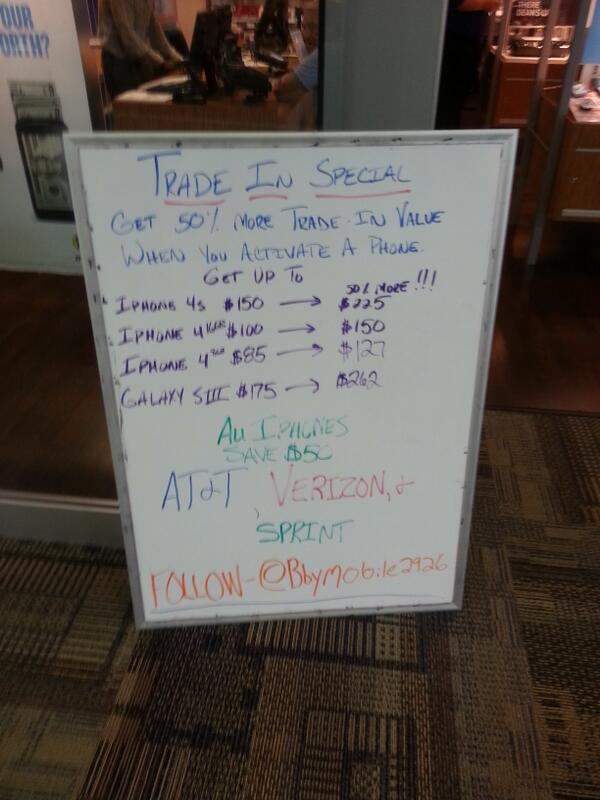 YOUR
WORTH?
THERE
TRADE IN SPECIAL
GET 50% MORE TRADE-IN VALUE
WHEN YOU ACTIVATE A PHONE.
GET UP TO
50% MORE!!!
IPHONE 4s $150 → $225
IPHONE 4 16GB $100 → $150
IPHONE 4 8GB $85 → $127
GALAXY SIII $175 → $262
All IPHONES
SAVE $50
AT&T, VERIZON, &
SPRINT
FOLLOW-@Bbymobile2926